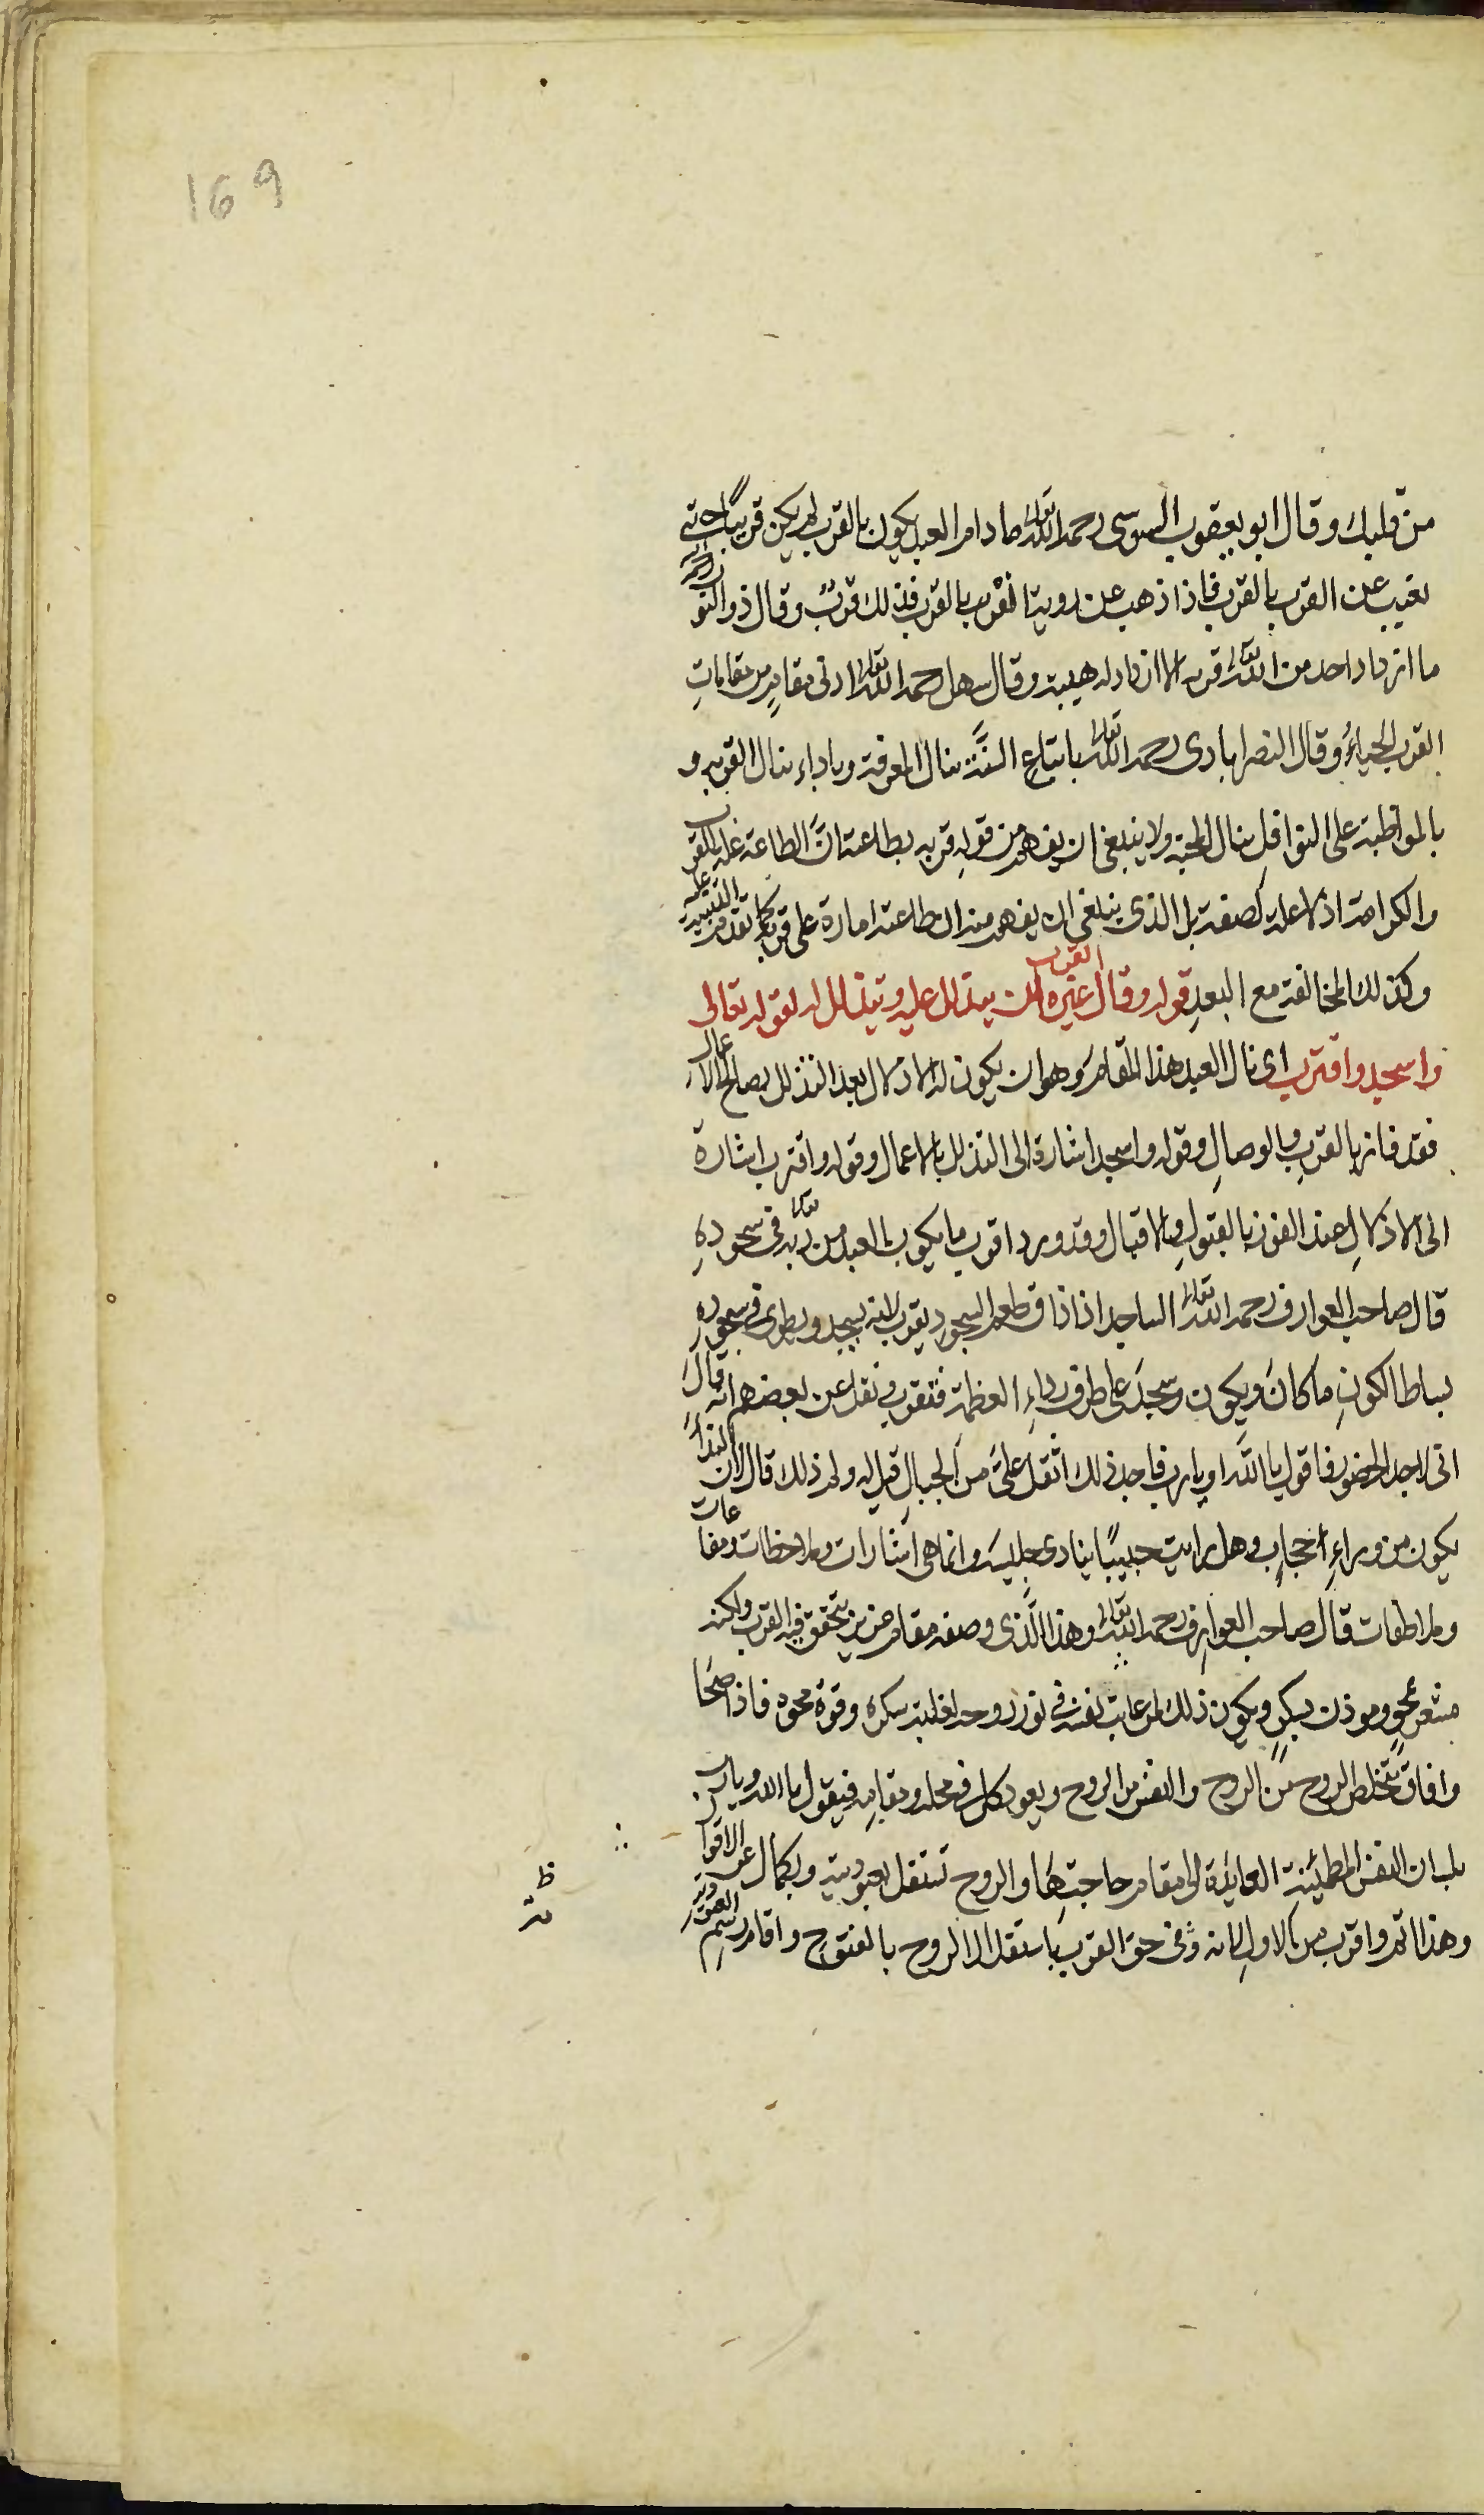 169
من قلبك وقال ابو يعقوب السوسى رحمه الله تعالى ما دام العبد يكون بالقرب لم يكن قريبا حتى
يغيب عن القرب بالقرب فاذا ذهب عن روية القرب بالقرب فذلك قرب وقال ذو النون
ما ازداد احد من الله تعالى قربة الا ازداد له هيبة وقال سهل رحمه الله تعالى ادنى مقام من مقاماتِ
القرب الحياءُ وقال النصرابادى رحمه الله تعالى باتباع السنَّة ينال المعرفة وباداء ينال القربة و
بالمواظبة على النوافل ينال المحبة ولا ينبغى ان يفهم من قوله قربه بطاعته انّ الطاعة علة للقرب
والكرامة اذ لا علة لصفته بل الذى ينبغى ان يفهم منه ان طاعته امارة على قربه كما تقدم التنبيه عليه
وكذلك المخالفة مع البعد قوله وقال غيره القرب ان يتدلل عليه ويتذلل له لقوله تعالى
واسجد واقترب اى نال العبد هذا المقام وهو ان يكون له الادلال بعد التذلل بصالح الاعمال
فقد فاز بالقربِ وبالوصالِ وقوله واسجد اشارة الى التذلل بالاعمال وقوله واقترب اشارة
الى الادلالِ عند الفوز بالقبولِ والاقبال وقد ورد اقرب ما يكون العبد من ربه تعالى فى سجودهِ
قال صاحب العوارف رحمه الله تعالى الساجد اذا ذاق طعم السجود يقرب لانه يسجد ويطوى فى سجوده
بساط الكونِ ما كانَ ويكون ويسجدَ على طرف رداءِ العظمة فيقرب ونقل عن بعضهم انه قالَ
انى لاجد الحضور فاقول يا الله او يا رب فاجد ذلك اثقل علىّ من الجبالِ قيل له ولم ذلك قال لان النداءَ
يكون من وراءِ حجابٍ وهل رايت حبيبًا ينادى جليسه وانما هى اشارات وملاحظات ومناغات
وملاطفات قال صاحب العوارف رحمه الله تعالى وهذا الّذى وصفه مقام عزيز يتحقق فيه القرب ولكنه
مشعر بمحوٍ وموذن بسكرٍ ويكون ذلك لمن غابت نفسه فى نور روحه لغلبة سكره وقوة محوه فاذا صَحَا
وافاق تتخلص الروح من النفس والنفس من الروح ويعود كل فى محله ومقامه فيقول يا الله ويا رب
بلسان النفس المطمئنة العايدة الى مقام حاجتِهَا والروح تستقل بعبوديته وبكمال عن الاقوال
وهذا اتم واقرب من الاول لانه وفى حق القرب باستقلال الروح بالفتوح واقام رسم العبودية
ظ